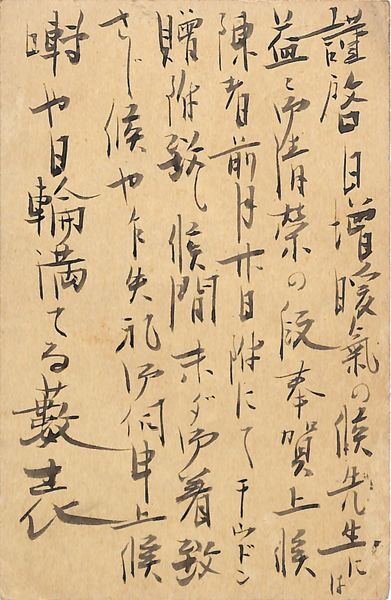 謹啓日増暖氣の候先生には
益々御清榮の段奉賀上候
陳者前月廿日附にて干ウドン
贈附致し候間未ダ御着致
さじ候や乍失礼御伺申上候
囀や日輪満てる藪表